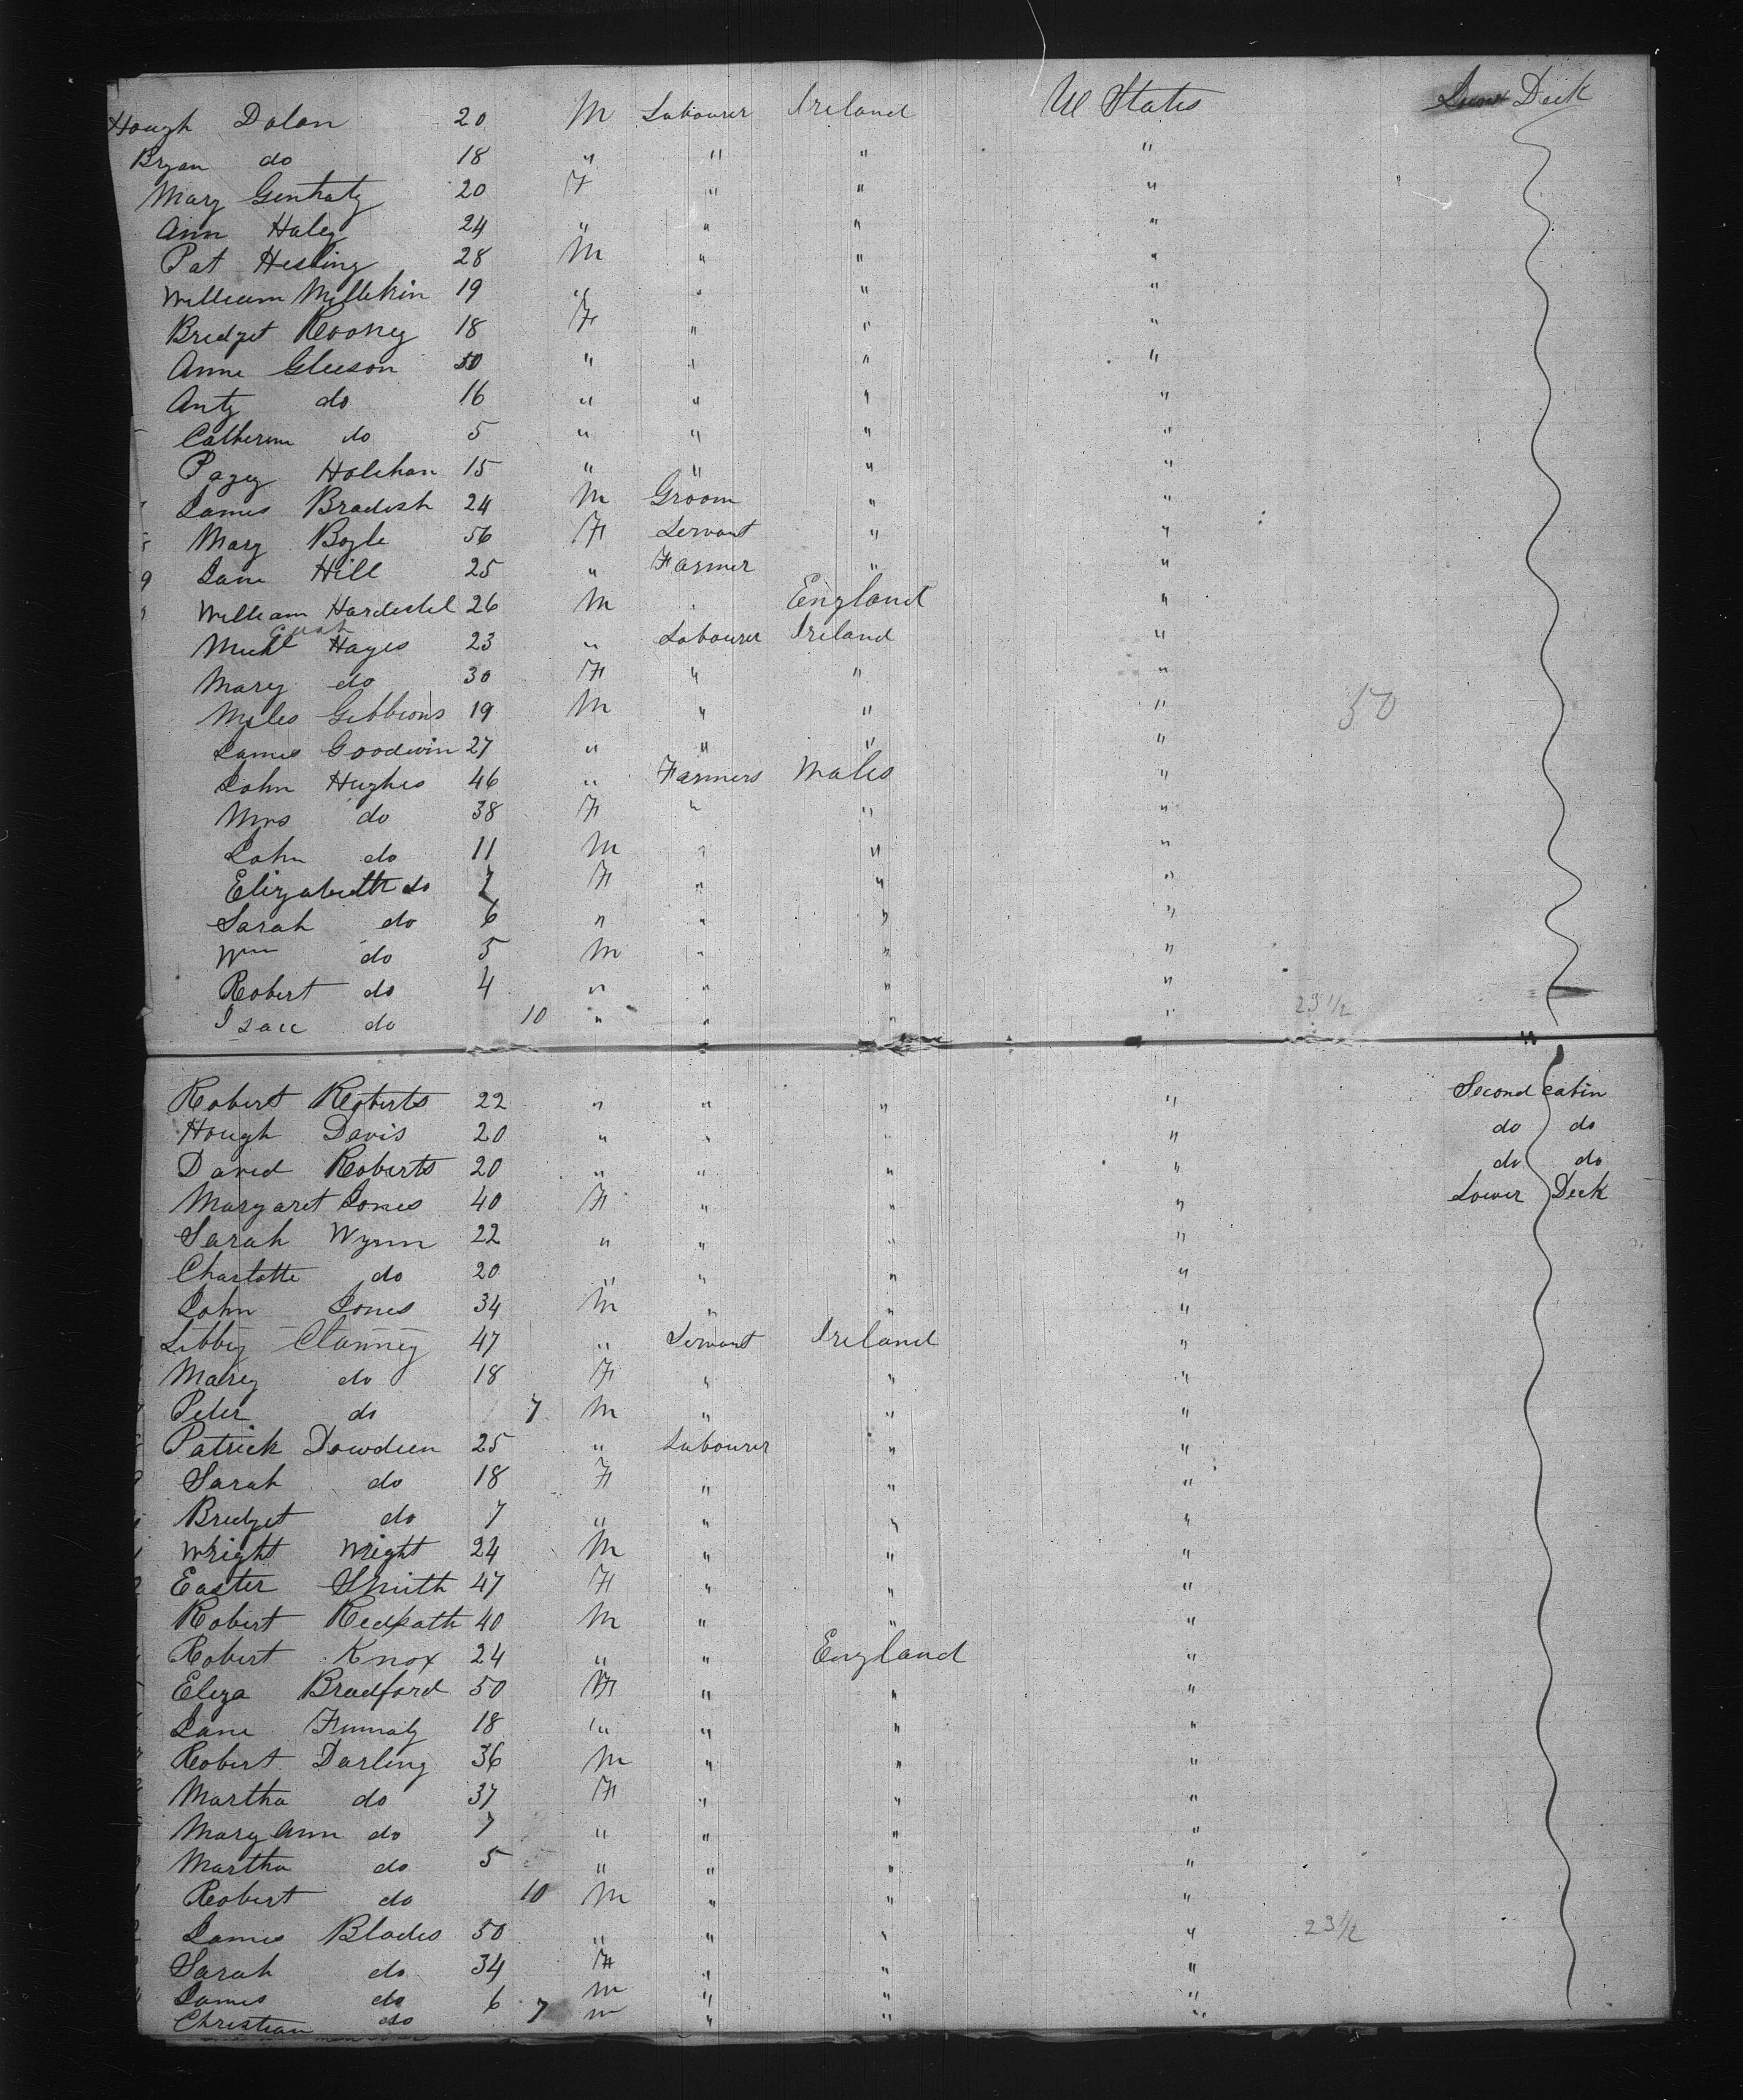 Hough Dolan 20 M Labourer Ireland U States Lower Deck
Bryan do 18 " " " "
Mary Gentraty 20 F " " "
Ann Haley 24 " " " "
Pat Hesling 28 M " " "
William Millikin 19 " " " "
Bridget Rooney 18 F " " "
Anne Gleeson 50 " " " "
Anty do 16 " " " "
Catherine do 5 " " " "
Pagy Holehan 15 " " " "
James Bradish 24 M Groom " "
Mary Boyle 56 F Servant " "
9 Jane Hill 25 " Farmer " "
William Hardestel 26 M " England "
Michl Hayes 23 " Labourer Ireland "
Mary do 30 F " " "
Myles Gibbions 19 M " " " 50
James Goodwin 27 " " " "
John Hughes 46 " Farmers Wales "
Mrs do 38 F " " "
John do 11 M " " "
Elizabeth do 7 F " " "
Sarah do 6 " " " "
Wm do 5 M " " "
Robert do 4 " " " "
Isaac do 10 " " " " 23 1/2
Robert Roberts 22 " " " " Second cabin
Hough Davis 20 " " " " do do
David Roberts 20 " " " " do do
Margaret Jones 40 F " " " Lower Deck
Sarah Wynn 22 " " " "
Charlotte do 20 " " " "
John Jones 34 M " " "
Libby Clanney 47 " Servant Ireland "
Mary do 18 F " " "
Peter do 7 M " " "
Patrick Dowdeen 25 " Labourer " "
Sarah do 18 F " " "
Bridget do 7 " " " "
Wright Wright 24 M " " "
Easter Smith 47 F " " "
Robert Redpath 40 M " " "
Robert Knox 24 " " England "
Eliza Bradford 50 F " " "
Jane 18 " " " "
Robert Darling 36 M " " "
Martha do 37 F " " "
Mary Ann do 7 " " " "
Martha do 5 " " " "
Robert do 10 M " " "
James Blades 50 " " " " 23 1/2
Sarah do 34 F " " "
James do 6 M " " "
Christian do 7 m " " "